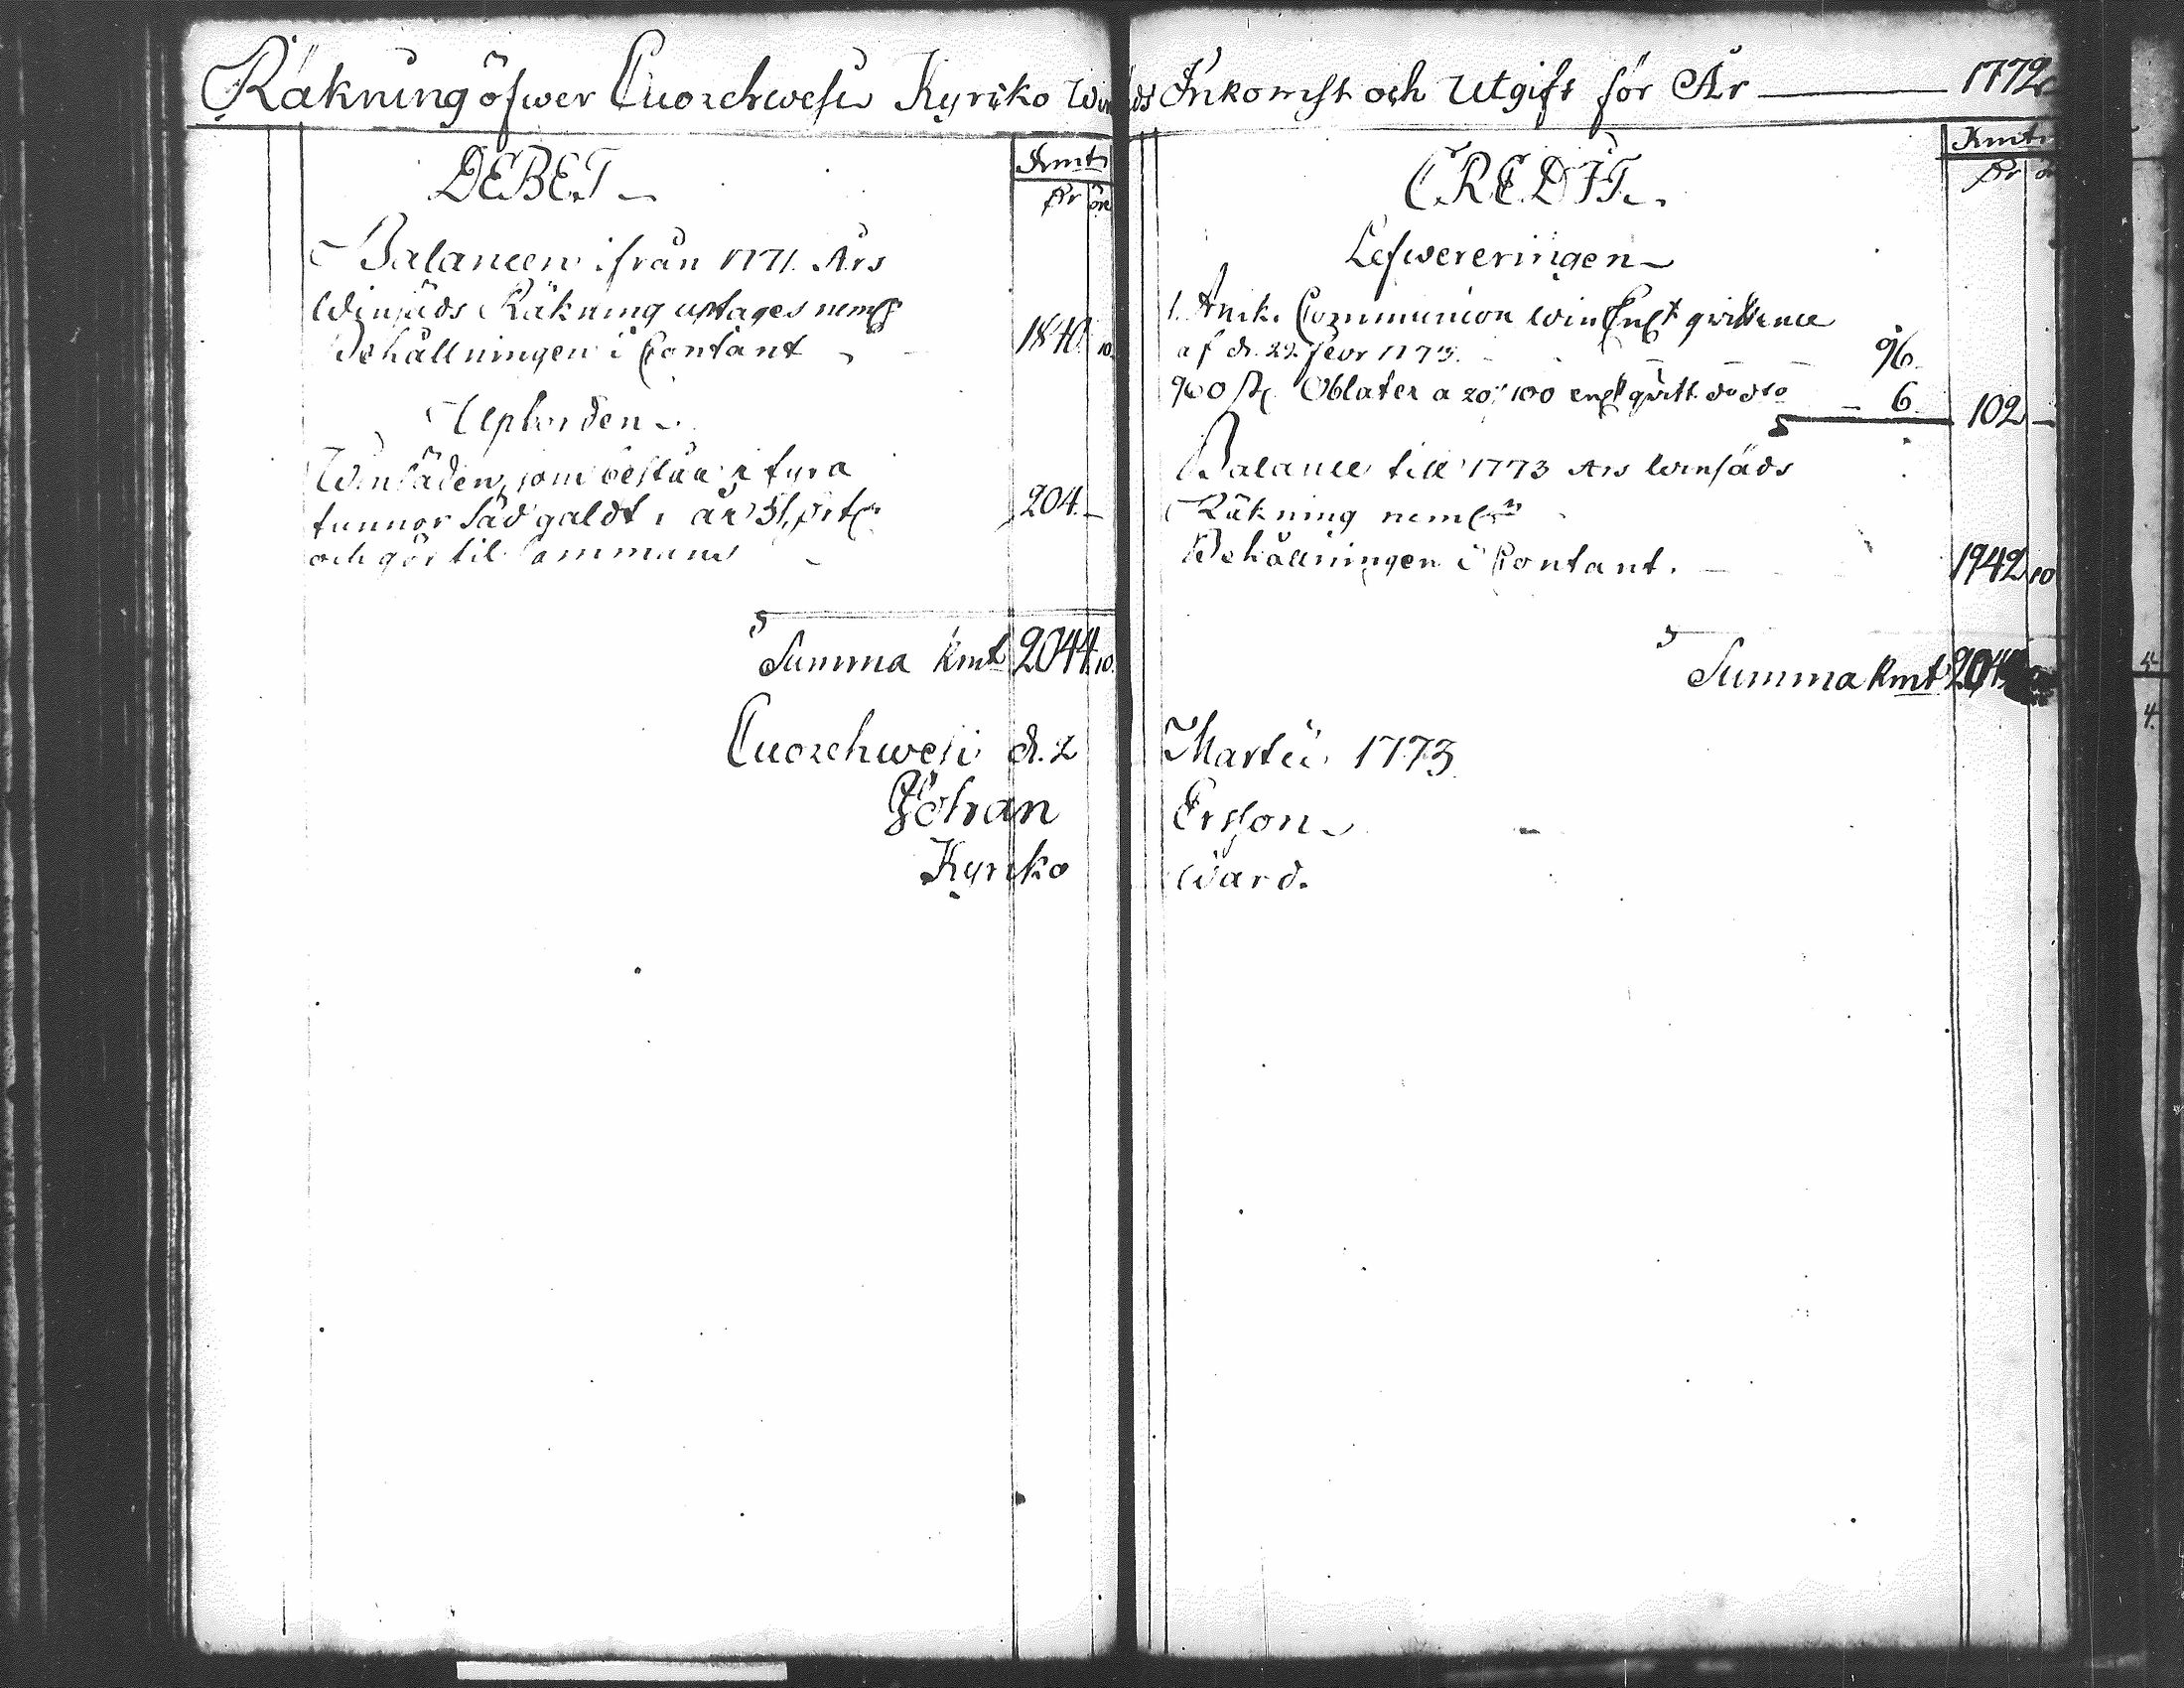 Räkning öfwer Cuorchwesi Kyrcko Winsäds Inkomst och Utgift för År — 1772
DEBET
Kmt
Dr öre
Balancen ifrån 1771 Års
Winsäds Räkning uptages neml
Behållningen i Contant 1840. 10.
Upbörden
Winsäden, som består i fyra
tunnor Säd galdt i år 51,
och gör til sammans 204. —
Summa Kmt 2044. 10.
CREDIT
Kmt
Dr ör
Lefwereringen
1. Ank. Communion win Enl qwittence
af d. 22. Febr 1773. 96.
960 st. Oblater a 20/ 100 enl qvitt dodto — 6. 102 —
Balance till 1773 Ars winsäds
Räkning neml
Behållningen i Contant. 1942 10
Summa Kmt
Cuorchwesi d. 2 Martii 1773.
Göhran Ersson
Kyrcko Ward.